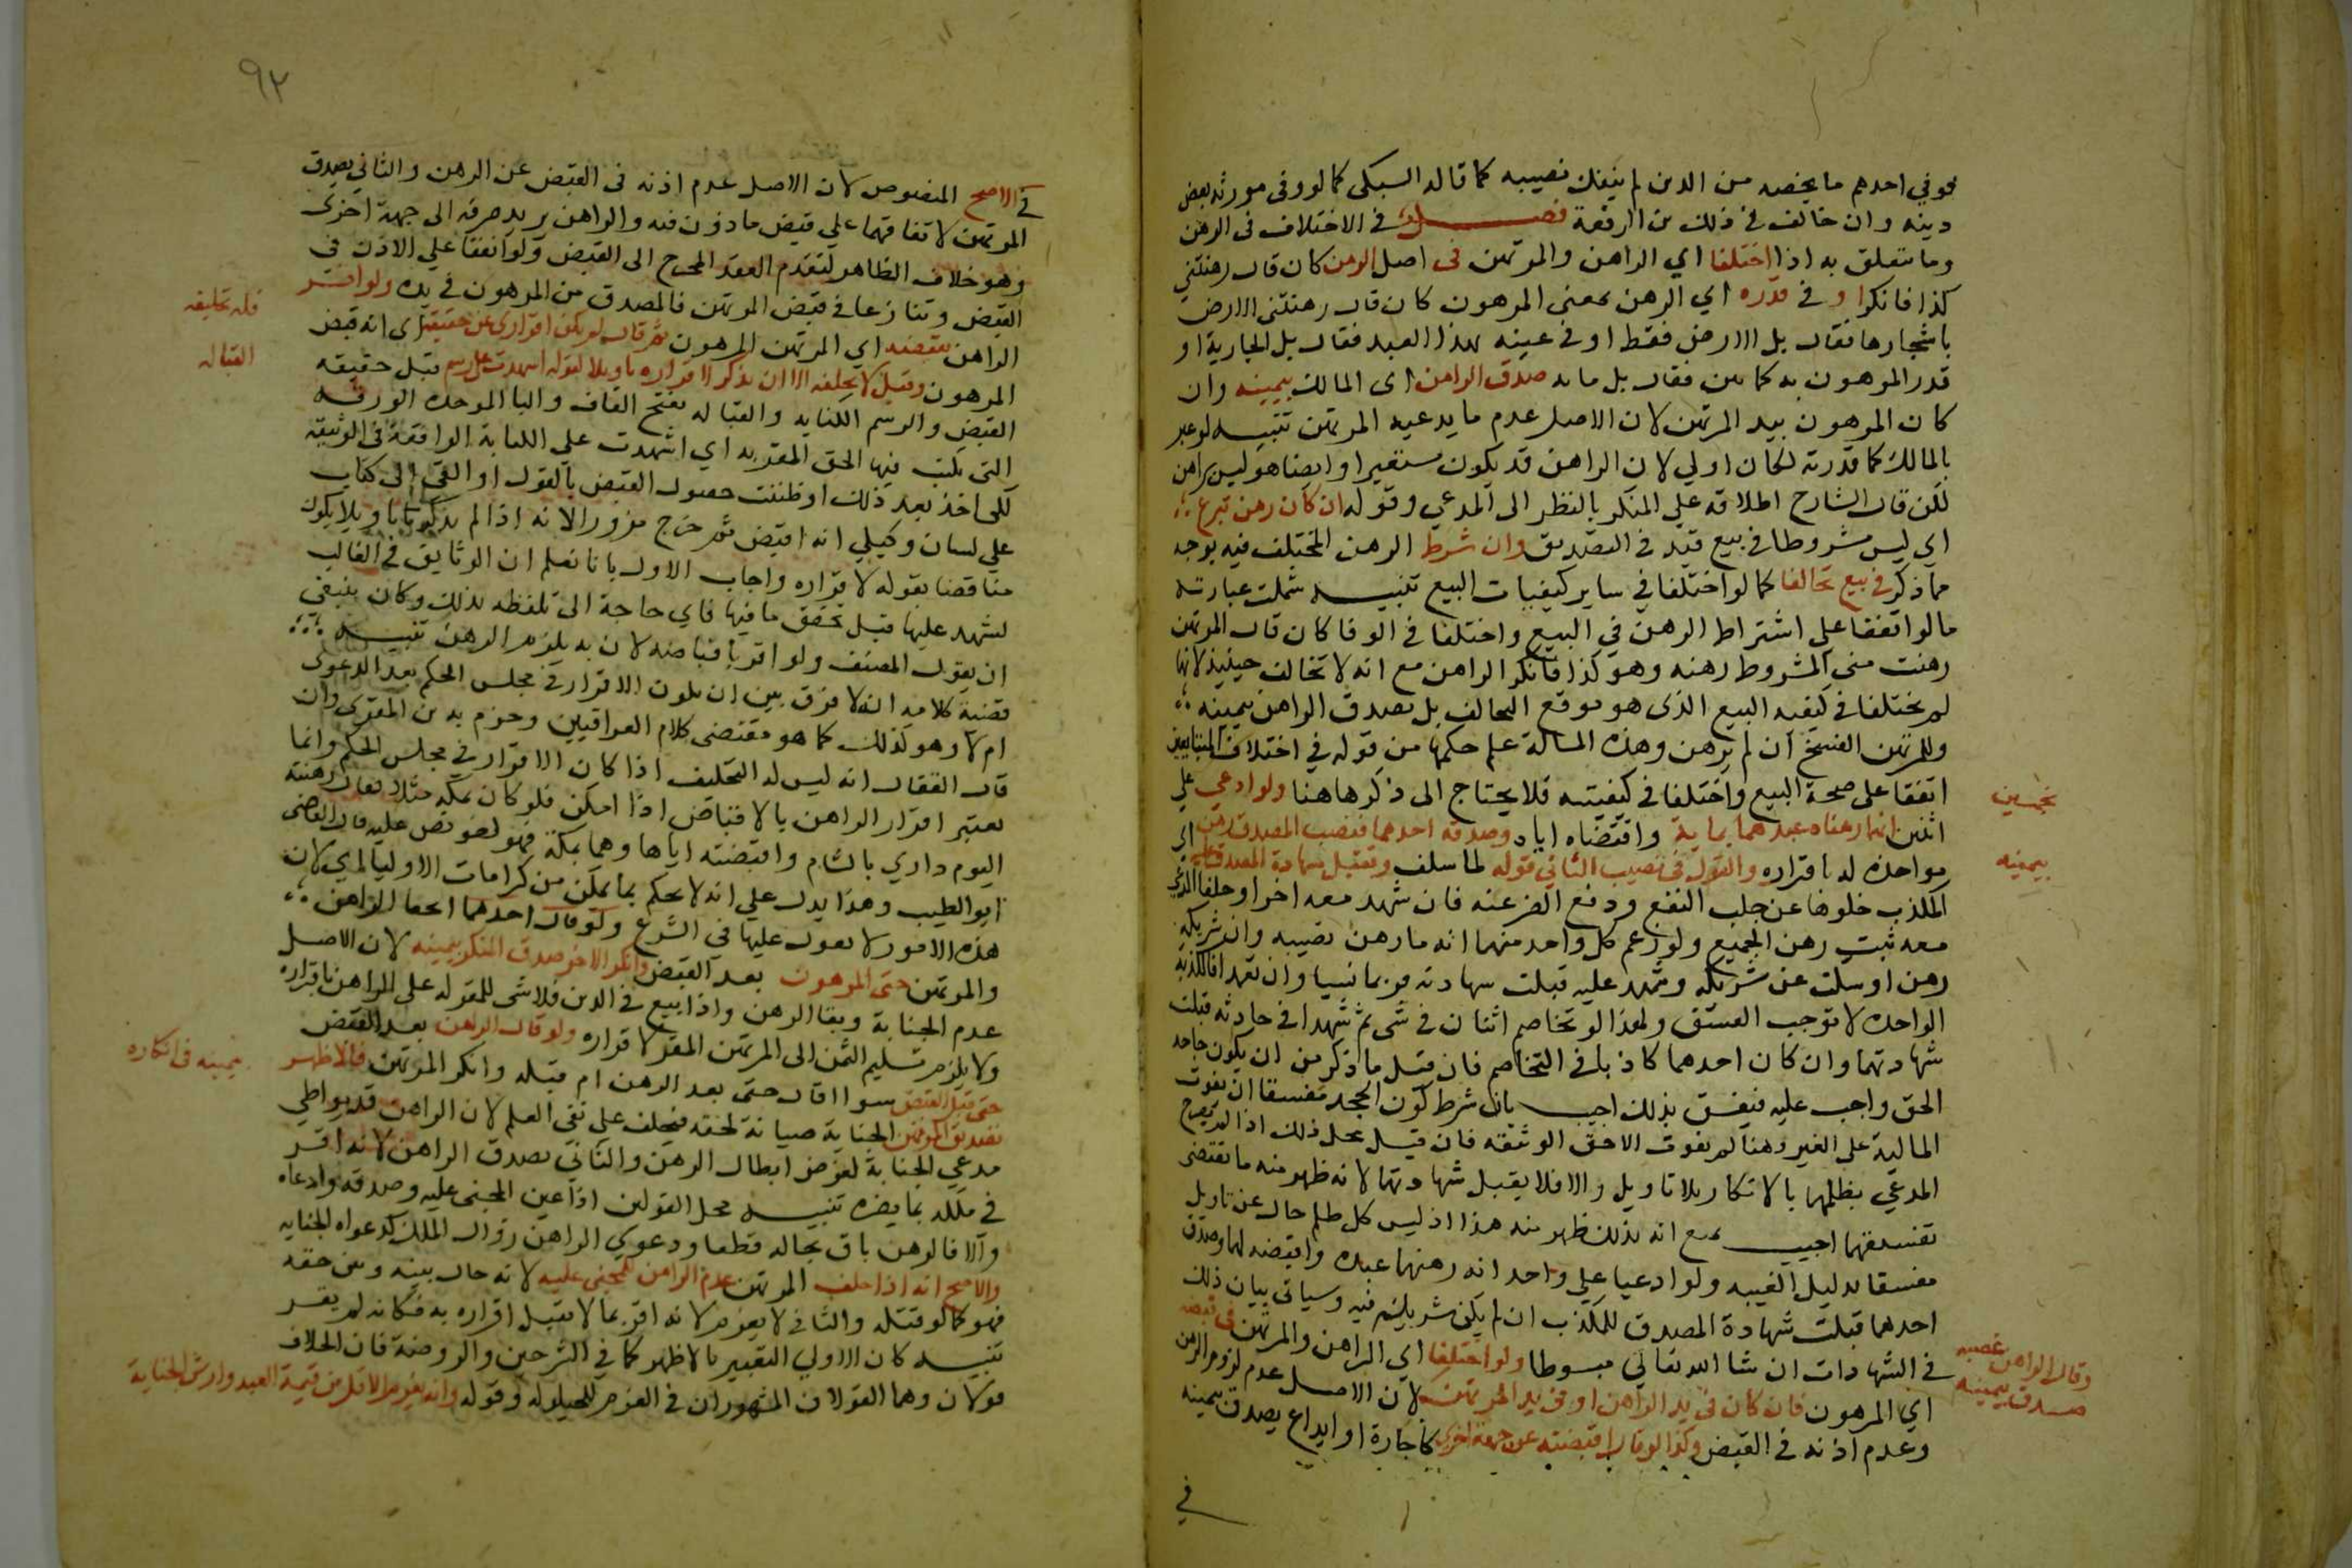 فوفي احدهم ما يخصه من الدين لم ينفك نصيبه كما قاله السبكي كما لو وفى مورثه بعض
دينه وان خالف في ذلك بن الرفعة فصل في الاختلاف في الرهن
وما يتعلق به اذا اختلفا اي الراهن والمرتهن في اصل الرهن كان قال رهنتني
كذا فانكر او في قدره اي الرهن بمعنى المرهون كان قال رهنتني الارض
باشجارها فقال بل الارض فقط او في عينه كهذا العبد فقال بل الجارية او
قدر المرهون به كمايتين فقال بل مايه صدق الراهن اى المالك بيمينه وان
كان المرهون بيد المرتهن لان الاصل عدم ما يدعيه المرتهن تنبيه لو عبر
بالمالك كما قدرته لكان اولي لان الراهن قد يكون مستعيرا وايضا هو ليس براهن
لكن قال الشارح اطلاقه علي المنكر بالنظر الى المدعي وقوله ان كان رهن تبرع
اي ليس مشروطا في بيع قيد في التصديق وان شرط الرهن المختلف فيه بوجه
مما ذكر في بيع تحالفا كما لو اختلفا في ساير كيفيات البيع تنبيه شملت عبارته
ما لو اتفقا علي اشتراط الرهن في البيع واختلفا في الوفا كان قال المرتهن
رهنت مني المشروط رهنه وهو كذا فانكر الراهن مع انه لا تحالف حينيذ لانهما
لم يختلفا في كيفيه البيع الذى هو موقع التحالف بل يصدق الراهن بيمينه
وللمرتهن الفسخ ان لم يرهن وهذه المسالة علم حكمها من قوله في اختلاف المتبايعين
اتفقا على صحة البيع واختلفا في كيفيته فلا يحتاج الى ذكرها هنا ولو ادعي على
اثنين انهما رهناه عبدهما بماية واقبضاه اياه وصدقه احدهما فنصيب المصدق رهن
بخمسين
مواخذة له باقراره والقول في نصيب الثاني قوله لما سلف وتقبل شهادة المصدق عليه اي
بيمينه
المكذب خلوها عن جلب النفع ودفع الضر عنه فان شهد معه اخر او حلف المدعي
معه ثبت رهن الجميع ولو زعم كل واحد منهما انه ما رهن نصيبه وان شريكه
رهن او سكت عن شريكه وشهد عليه قبلت شهادته فربما نسيا وان تعمدا فالكذبة
الواحدة لا توجب الفسق ولهذا لو تخاصم اثنان في شي ثم شهدا في حادثه قبلت
شهادتهما وان كان احدهما كاذبا في التخاصم فان قيل ما ذكر من ان يكون جاحد
الحق واجب عليه فيفسق بذلك اجيب بان شرط كون الجحد مفسقا ان يفوت
المالية على الغير وهنا لم يفوت الا حق الوثيقه فان قيل محل ذلك اذا لم يصرح
المدعي بظلمهما بالانكار بلا تاويل والا فلا يقبل شهادتهما لانه ظهر منه ما يقتضى
تفسيقهما اجيب بمنع انه بذلك ظهر منه هذا اذ ليس كل ظلم خال عن تاويل
مفسقا بدليل الغيبه ولو ادعيا علي واحد انه رهنهما عبده واقبضه لهما وصدق
احدهما قبلت شهادة المصدق للمكذب ان لم يكن شريكه فيه وسياتى بيان ذلك
في الشهادات ان شا الله تعالي مبسوطا ولو اختلفا اي الراهن والمرتهن في قبضه
وقال الراهن غصبه
صدق بيمينه
اي المرهون فان كان في يد الراهن او في يد المرتهن لان الاصل عدم لزوم الرهن
وعدم اذنه في القبض وكذا لو قال اقبضته عن جهة اخرى كاجارة او ايداع يصدق بيمينه
في
٩٢
في الاصح المنصوص لان الاصل عدم اذنه في القبض عن الرهن والثاني يصدق
المرتهن لاتفاقهما علي قبض ماذون فيه والراهن يريد صرفه الى جهة اخرى
وهو خلاف الظاهر لتقدم العقد المحوج الى القبض ولو اتفقا علي الاذن في
القبض وتنازعا في قبض المرتهن فالمصدق من المرهون في يده ولو اقر
الراهن بقبضه اي المرتهن المرهون ثم قال لم يكن اقراري عن حقيقة اى انه قبض
فله تحليفه
المرهون وقيل لا يحلفه الا ان يذكر لاقراره تاويلا كقوله اشهدت على رسم قبل حقيقه
القباله
القبض والرسم الكتابه والقباله بفتح القاف والبا الموحده الورقه
التي يكتب فيها الحق المقر به اي اشهدت على الكتابة الواقعة في الوثيقه
لكي اخذ بعد ذلك او ظننت حصول القبض بالقول او القي الى كتاب
علي لسان وكيلي انه اقبض ثم خرج مزورا لانه اذا لم يذكر تاويلا يكون
مناقضا بقوله لاقراره واجاب الاول بانا نعلم ان الوثايق في الغالب
ليشهد عليها قبل تحقق ما فيها فاي حاجة الى تلفظه بذلك وكان ينبغي
ان يقول المصنف ولو اقر باقباضه لان به يلزم الرهن تنبيه
قضية كلامه انه لا فرق بين ان يكون الاقرار في مجلس الحكم بعد الدعوى
ام لا وهو كذلك كما هو مقتضى كلام العراقيين وجزم به بن المقري وان
قال القفال انه ليس له التحليف اذا كان الاقرار في مجلس الحكم وانما
يعتبر اقرار الراهن بالاقباض اذا امكن فلو كان بمكه مثلا فقال رهنته
اليوم داري بالشام واقبضته اياها وهما بمكة فهو لغو نص عليه قال القاضى
ابو الطيب وهذا يدل علي انه لا يحكم بما يمكن من كرامات الاوليا اي لان
هذه الامور لا يعول عليها في الشرع ولو قال احدهما اي الراهن
والمرتهن جنى المرهون بعد القبض وانكر الاخر صدق المنكر بيمينه لان الاصل
عدم الجناية وبقا الرهن واذا بيع في الدين فلا شي للمقر له على الراهن باقراره
ولا يلزم تسليم الثمن الى المرتهن المقر لاقراره ولو قال الراهن بعد القبض
جنى قبل القبض سوا اقال جنى بعد الرهن ام قبله وانكر المرتهن فالاظهر
تصديق المرتهن الجناية صيانة لحقه فيحلف على نفي العلم لان الراهن قد يواطي
بيمينه في انكاره
مدعي الجناية لغرض ابطال الرهن والثاني يصدق الراهن لانه اقر
في ملكه بما يضره تنبيه محل القولين اذا عين المجني عليه وصدقه وادعاه
والا فالرهن باق بحاله قطعا ودعوي الراهن زوال الملك كدعواه الجنايه
والاصح انه اذا حلف المرتهن غرم الراهن للمجني عليه لانه حال بينه وبين حقه
فهو كما لو قتله والثاني لا يغرم لانه اقر بما لا يقبل اقراره به فكانه لم يقر
تنبيه كان الاولي التعبير بالاظهر كما في الشرحين والروضة فان الخلاف
قولان وهما القولان المشهوران في الغرم للحيلوله وقوله وانه يغرم الاقل من قيمة العبد وارش الجناية